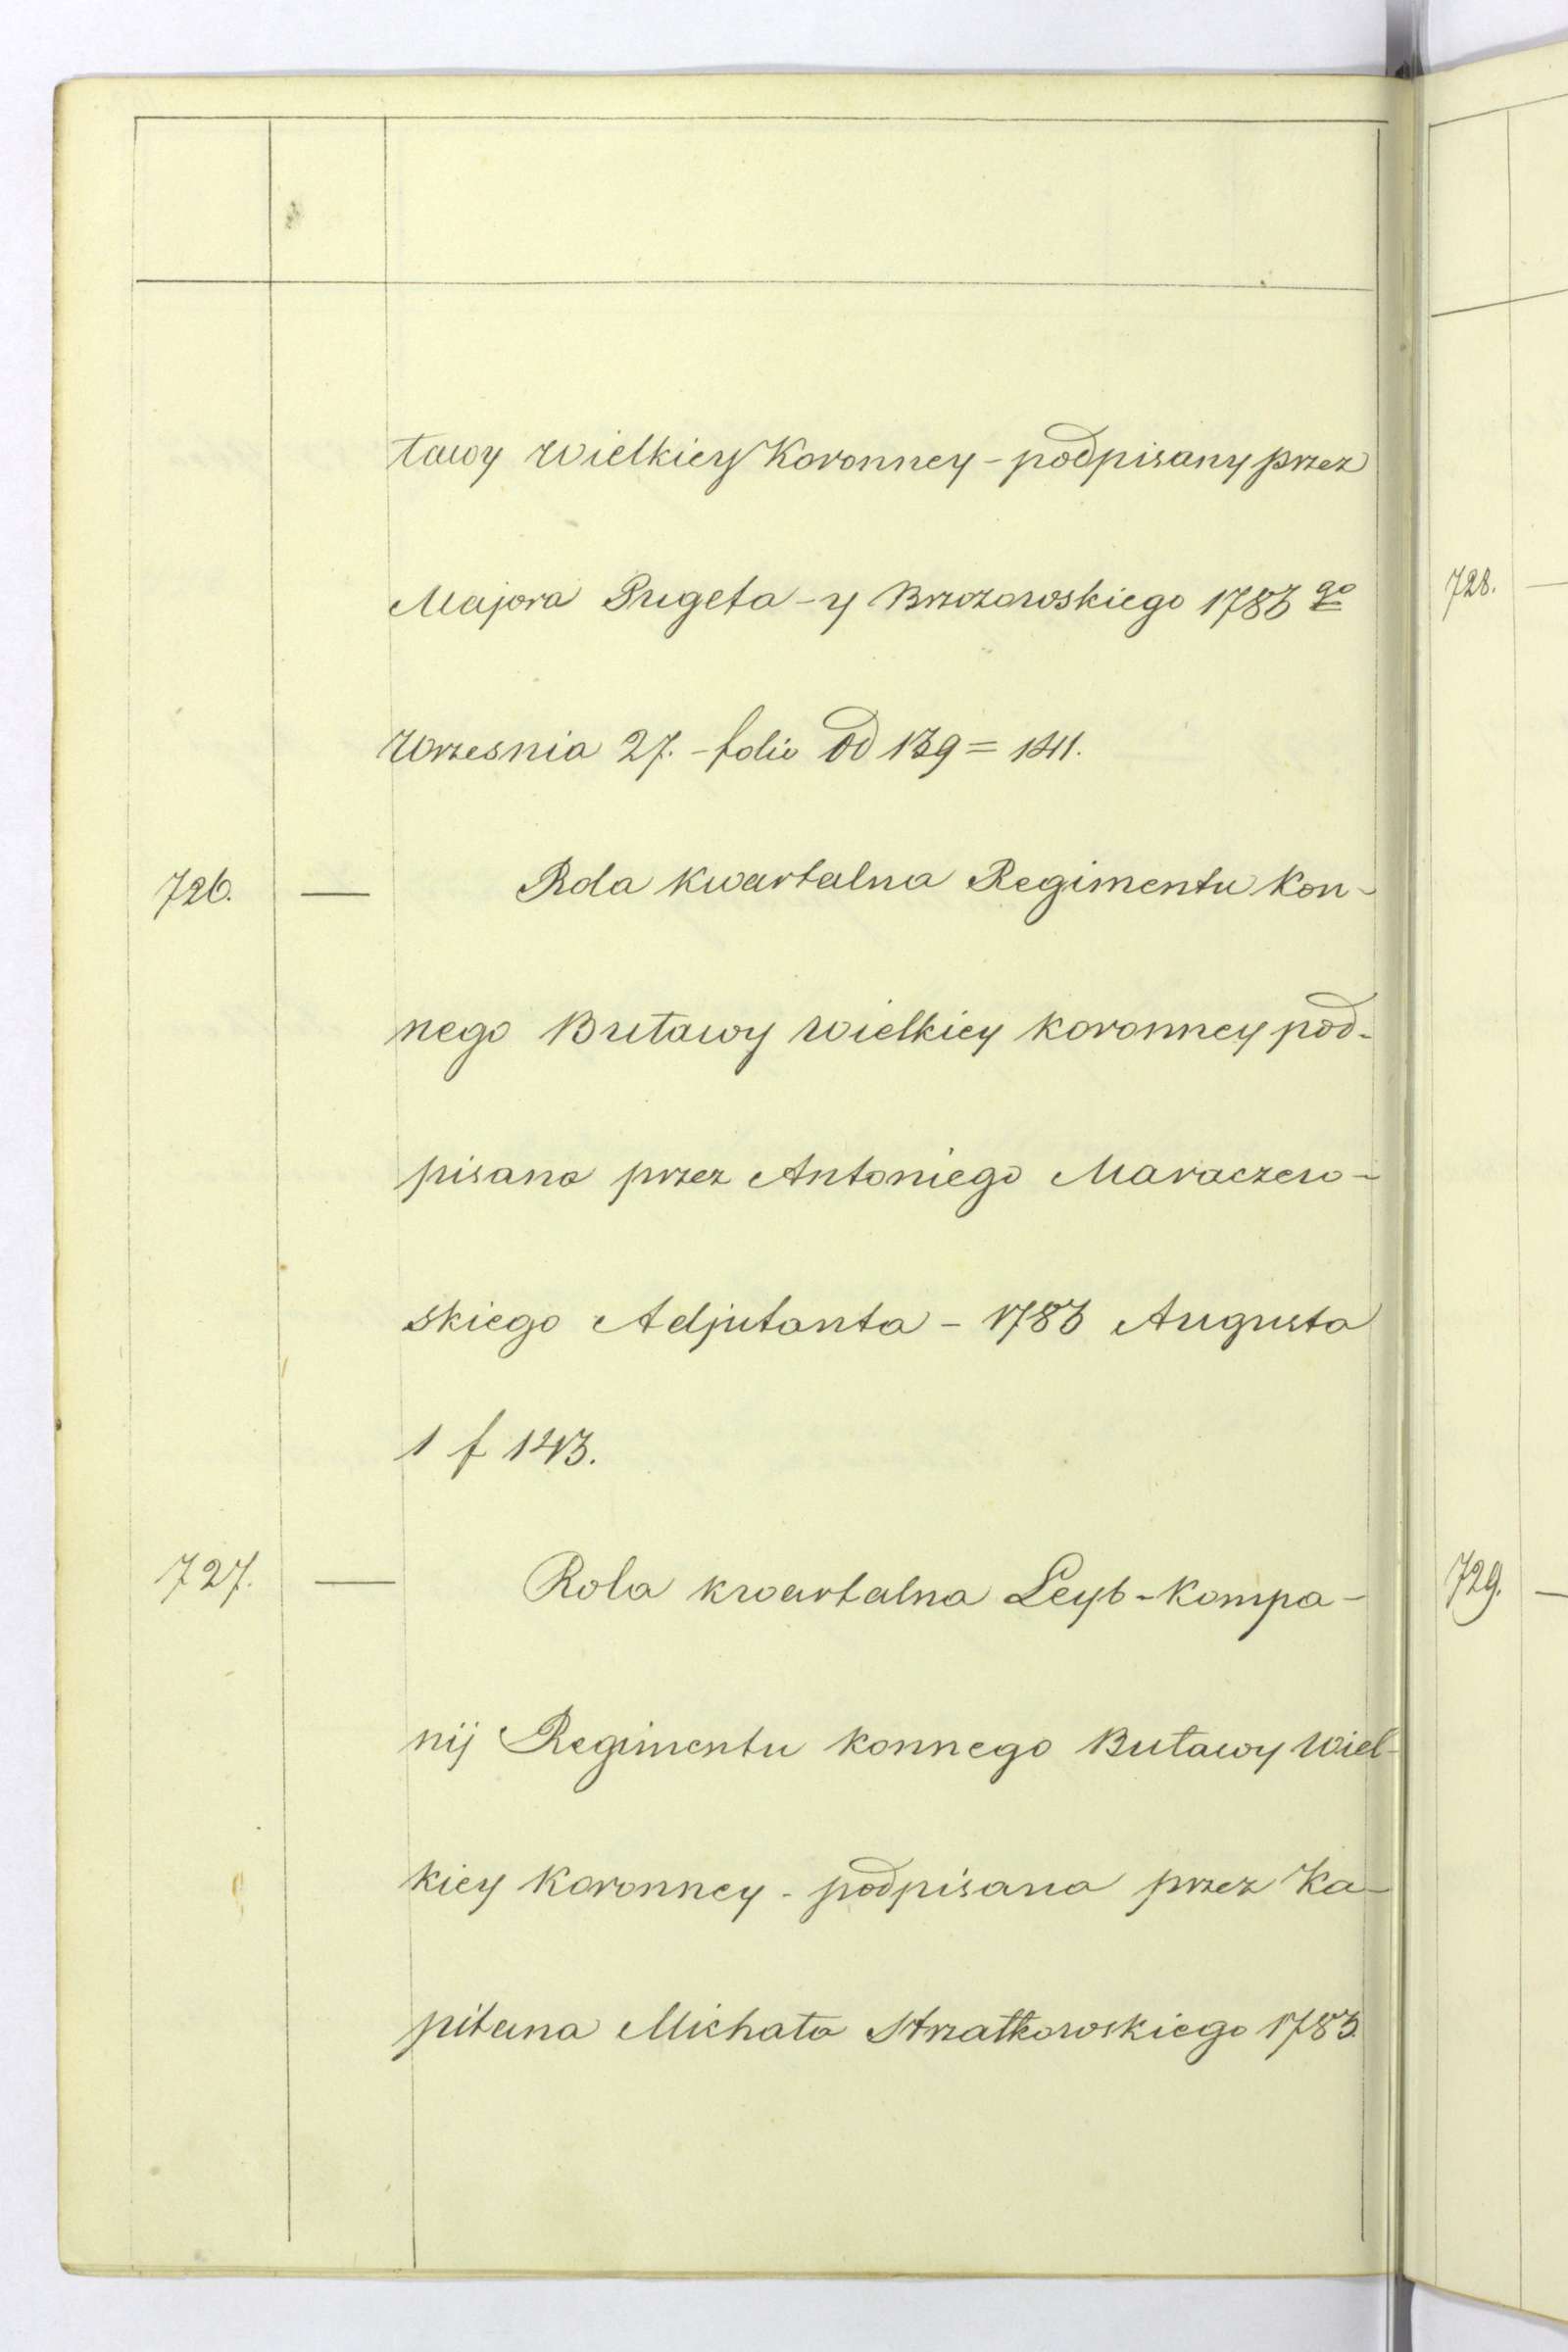 tawy Wielkiey Koronney - podpisany przez
Majora Pugeta - y Brzozowskiego 1783 go
Wrzesnia 27. - folio od 139 = 141.
726. — Rola kwartalna Regimentu kon-
nego Buławy wielkiey koronney pod-
pisana przez Antoniego Maraczew-
skiego Adjutanta - 1783 Augusta
1 f 143.
727. — Rola kwartalna Leyb-kompa-
nij Regimentu konnego Buławy wiel-
kiey koronney - podpisana przez Ka-
pitana Michała Strzałkowskiego 1783.
728. —
729. —